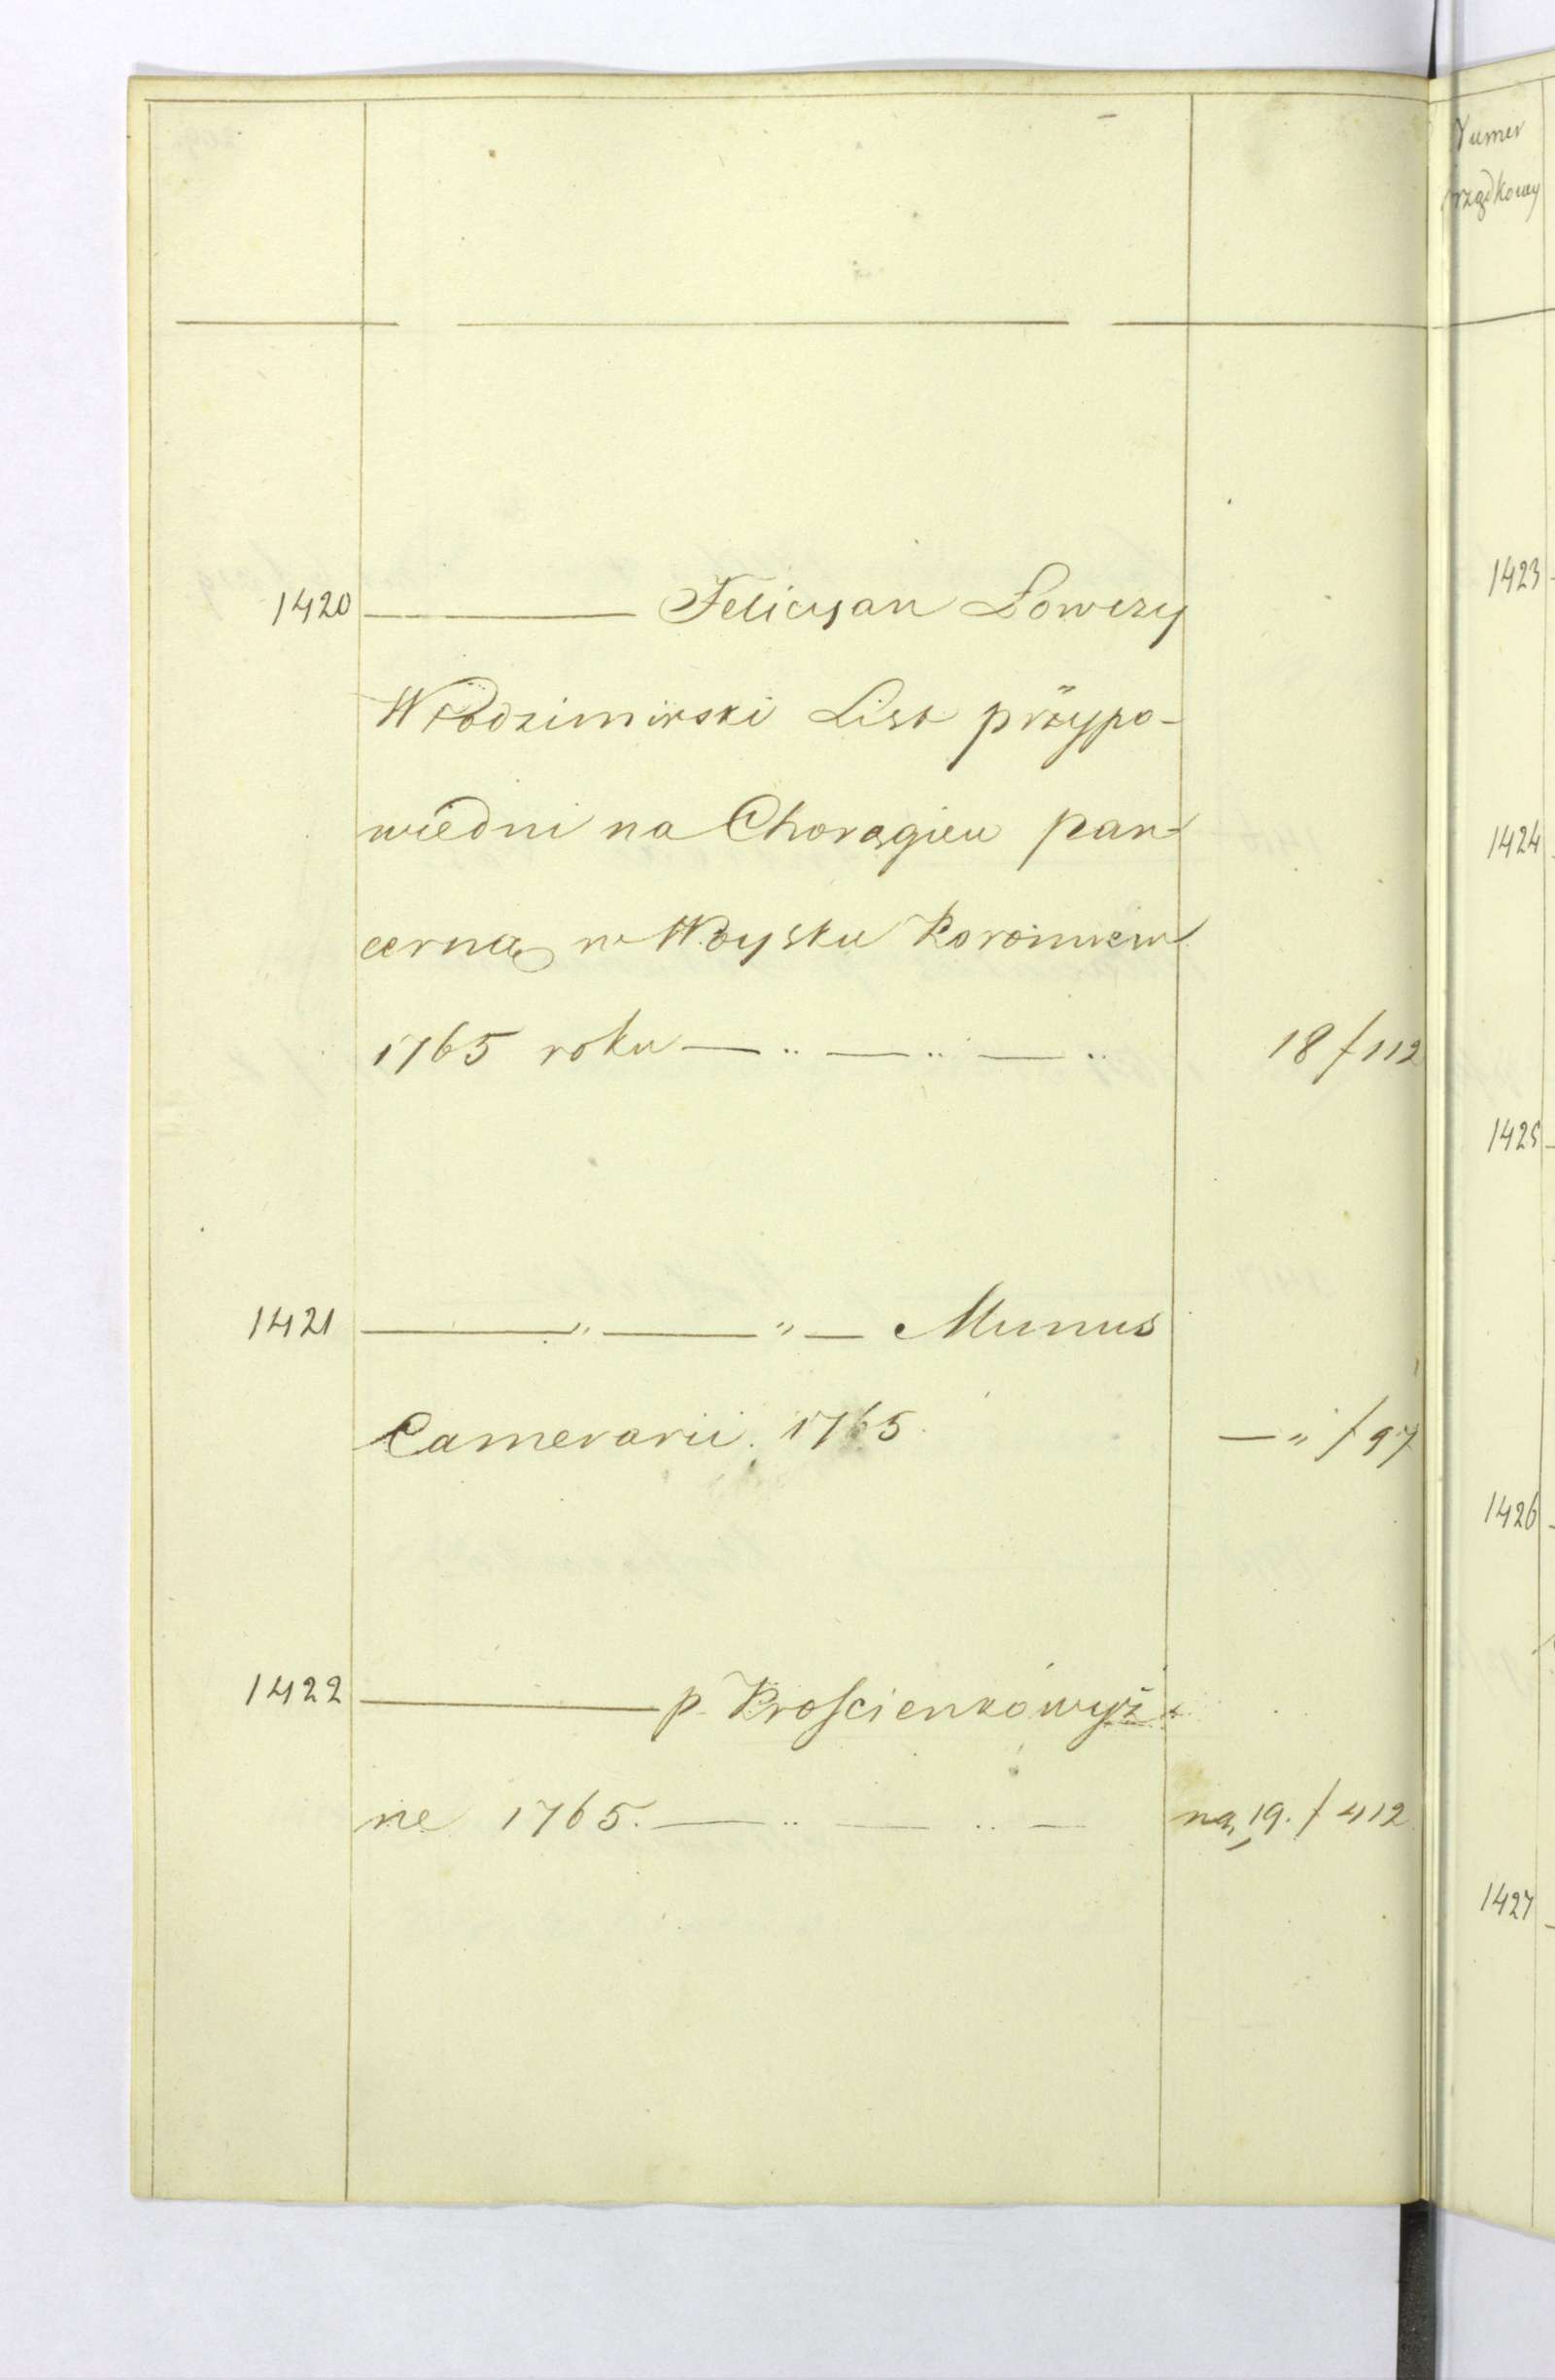 Numer
rządkowy
1420 ——— Felicyan Łowczy
Włodzimirski List przypo-
wiedni na Chorągiew pan-
cerną w Woysku Koronnem
1765 roku — „ — „ — „ 18 / 112
1421 ——— „ ——— „ — Munus
Camerarii. 1765. — „ / 97
1422 ——— p. Krościenkówyż-
ne 1765. — „ — „ — na, 19. / 412
1423
1424
1425
1426
1427